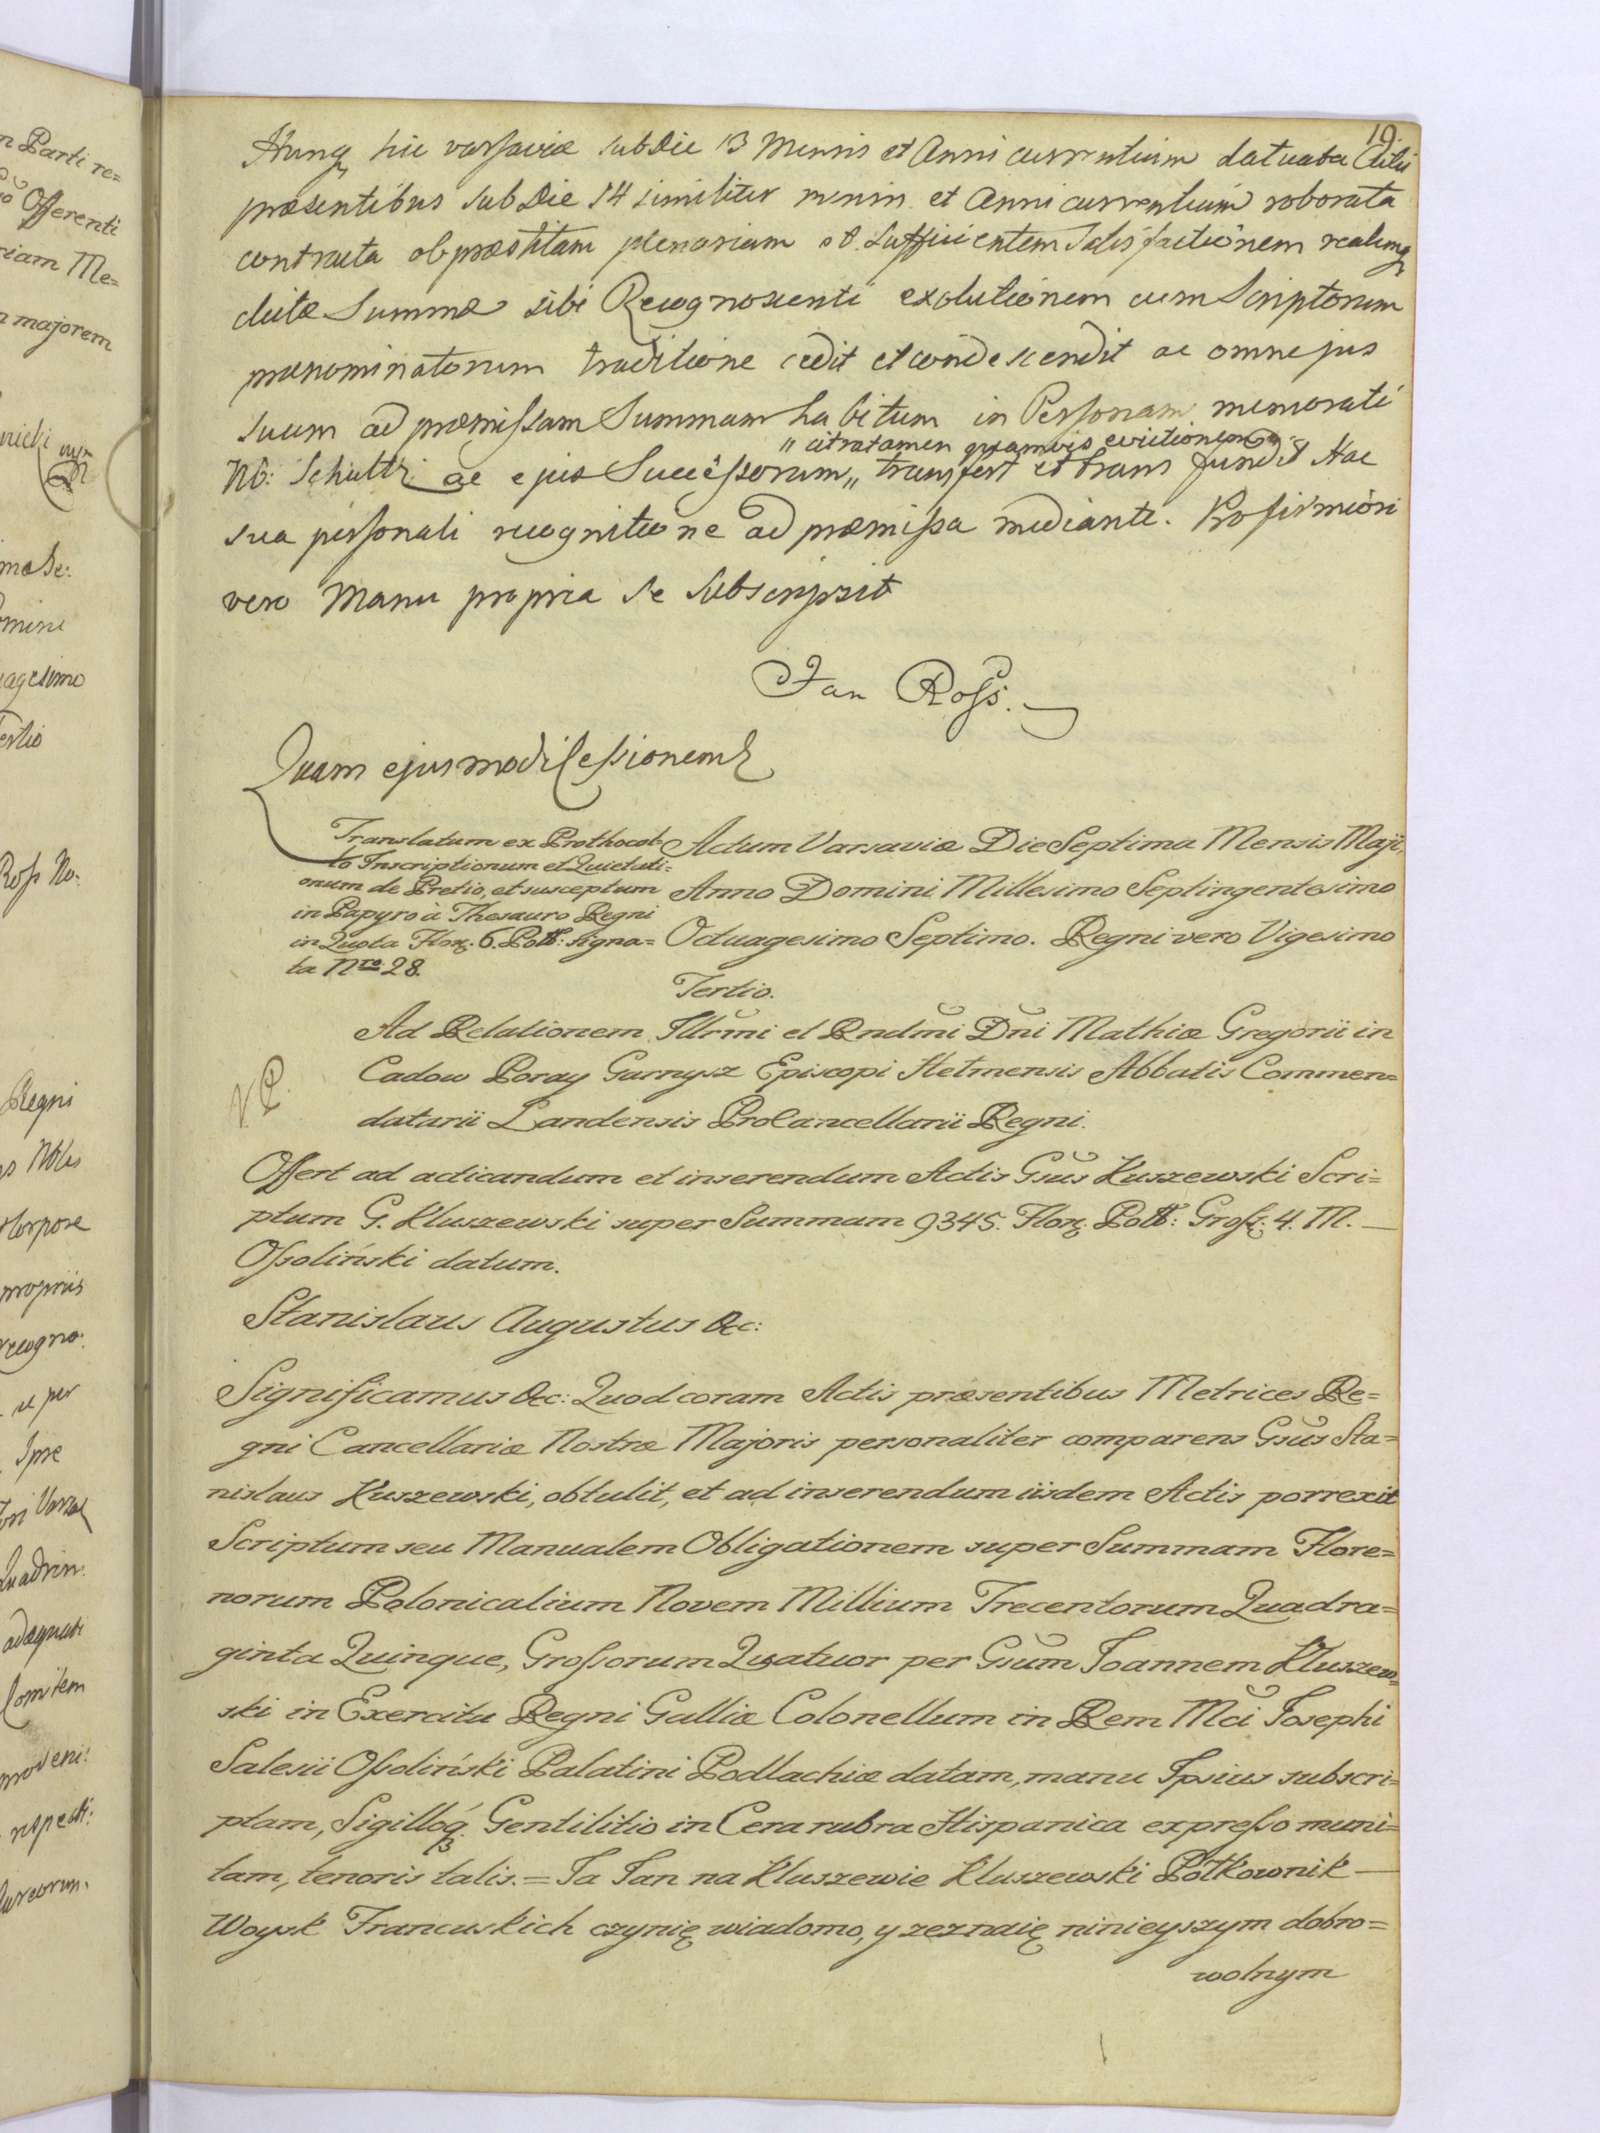 19.
Hung hic varsaviæ sub Die 13 Mensis et Anni currentium data
præsentibus sub Die 14 similiter mensis et Anni currentium roborata
contracta ob præstitam plenariam et Sufficientem Satisfactionem realemq
dictæ Summæ sibi Recognoscenti exolutionem cum Scriptorum
prænominatorum traditione cedit et condescendit ac omne jus
suum ad præmissam Summam habitum in Personam memorati
„ citra tamen quamvis evictionem „
Nb: Schultz ac ejus Successorum „ transfert et transfundit Hac
sua personali recognitione ad præmissa mediante. Pro firmiori
vero Manu propria se subscripsit
Jan Ross.
Quam ejusmodi Cessionem
Translatum ex Prothocol-
lo Inscriptionum et Quietati-
onum de Pretio, et susceptum
in Papyro à Thesauro Regni
in Quota Flor. 6. Poll: signa=
ta Nro 28.
Actum Varsaviæ Die Septima Mensis Maji,
Anno Domini Millesimo Septingentesimo
Octuagesimo Septimo. Regni vero Vigesimo
Tertio.
Ad Relationem Illrmi et Rndmi Dni Mathiæ Gregorii in
Cadow Poray Garnysz Episcopi Helmensis Abbatis Commen=
datarii Landensis ProCancellarii Regni.
Offert ad acticandum et inserendum Actis Gsus Kuszewski Scri=
ptum G. Kluszewski super Summam 9345. Flor. Poll: Gross. 4. M.
Ossoliński datum.
Stanislaus Augustus &c:
Significamus &c: Quod coram Actis præsentibus Metrices Re=
gni Cancellariæ Nostræ Majoris personaliter comparens Gsus Sta=
nislaus Kuszewski, obtulit, et ad inserendum iisdem Actis porrexit
Scriptum seu Manualem Obligationem super Summam Flore=
norum Polonicalium Novem Millium Trecentorum Quadra=
ginta Quinque, Grossorum Quatuor per Gsum Joannem Kluszew=
ski in Exercitu Regni Galliæ Colonellum in Rem Mci Josephi
Salesii Ossoliński Palatini Podlachiæ datam, manu Ipsius subscri=
ptam, Sigilloq Gentilitio in Cera rubra Hispanica expresso muni=
tam, tenoris talis. = Ja Jan na Kluszewie Kluszewski Połkownik
Woysk Francuskich czynię wiadomo, y zeznaię ninieyszym dobro=
wolnym